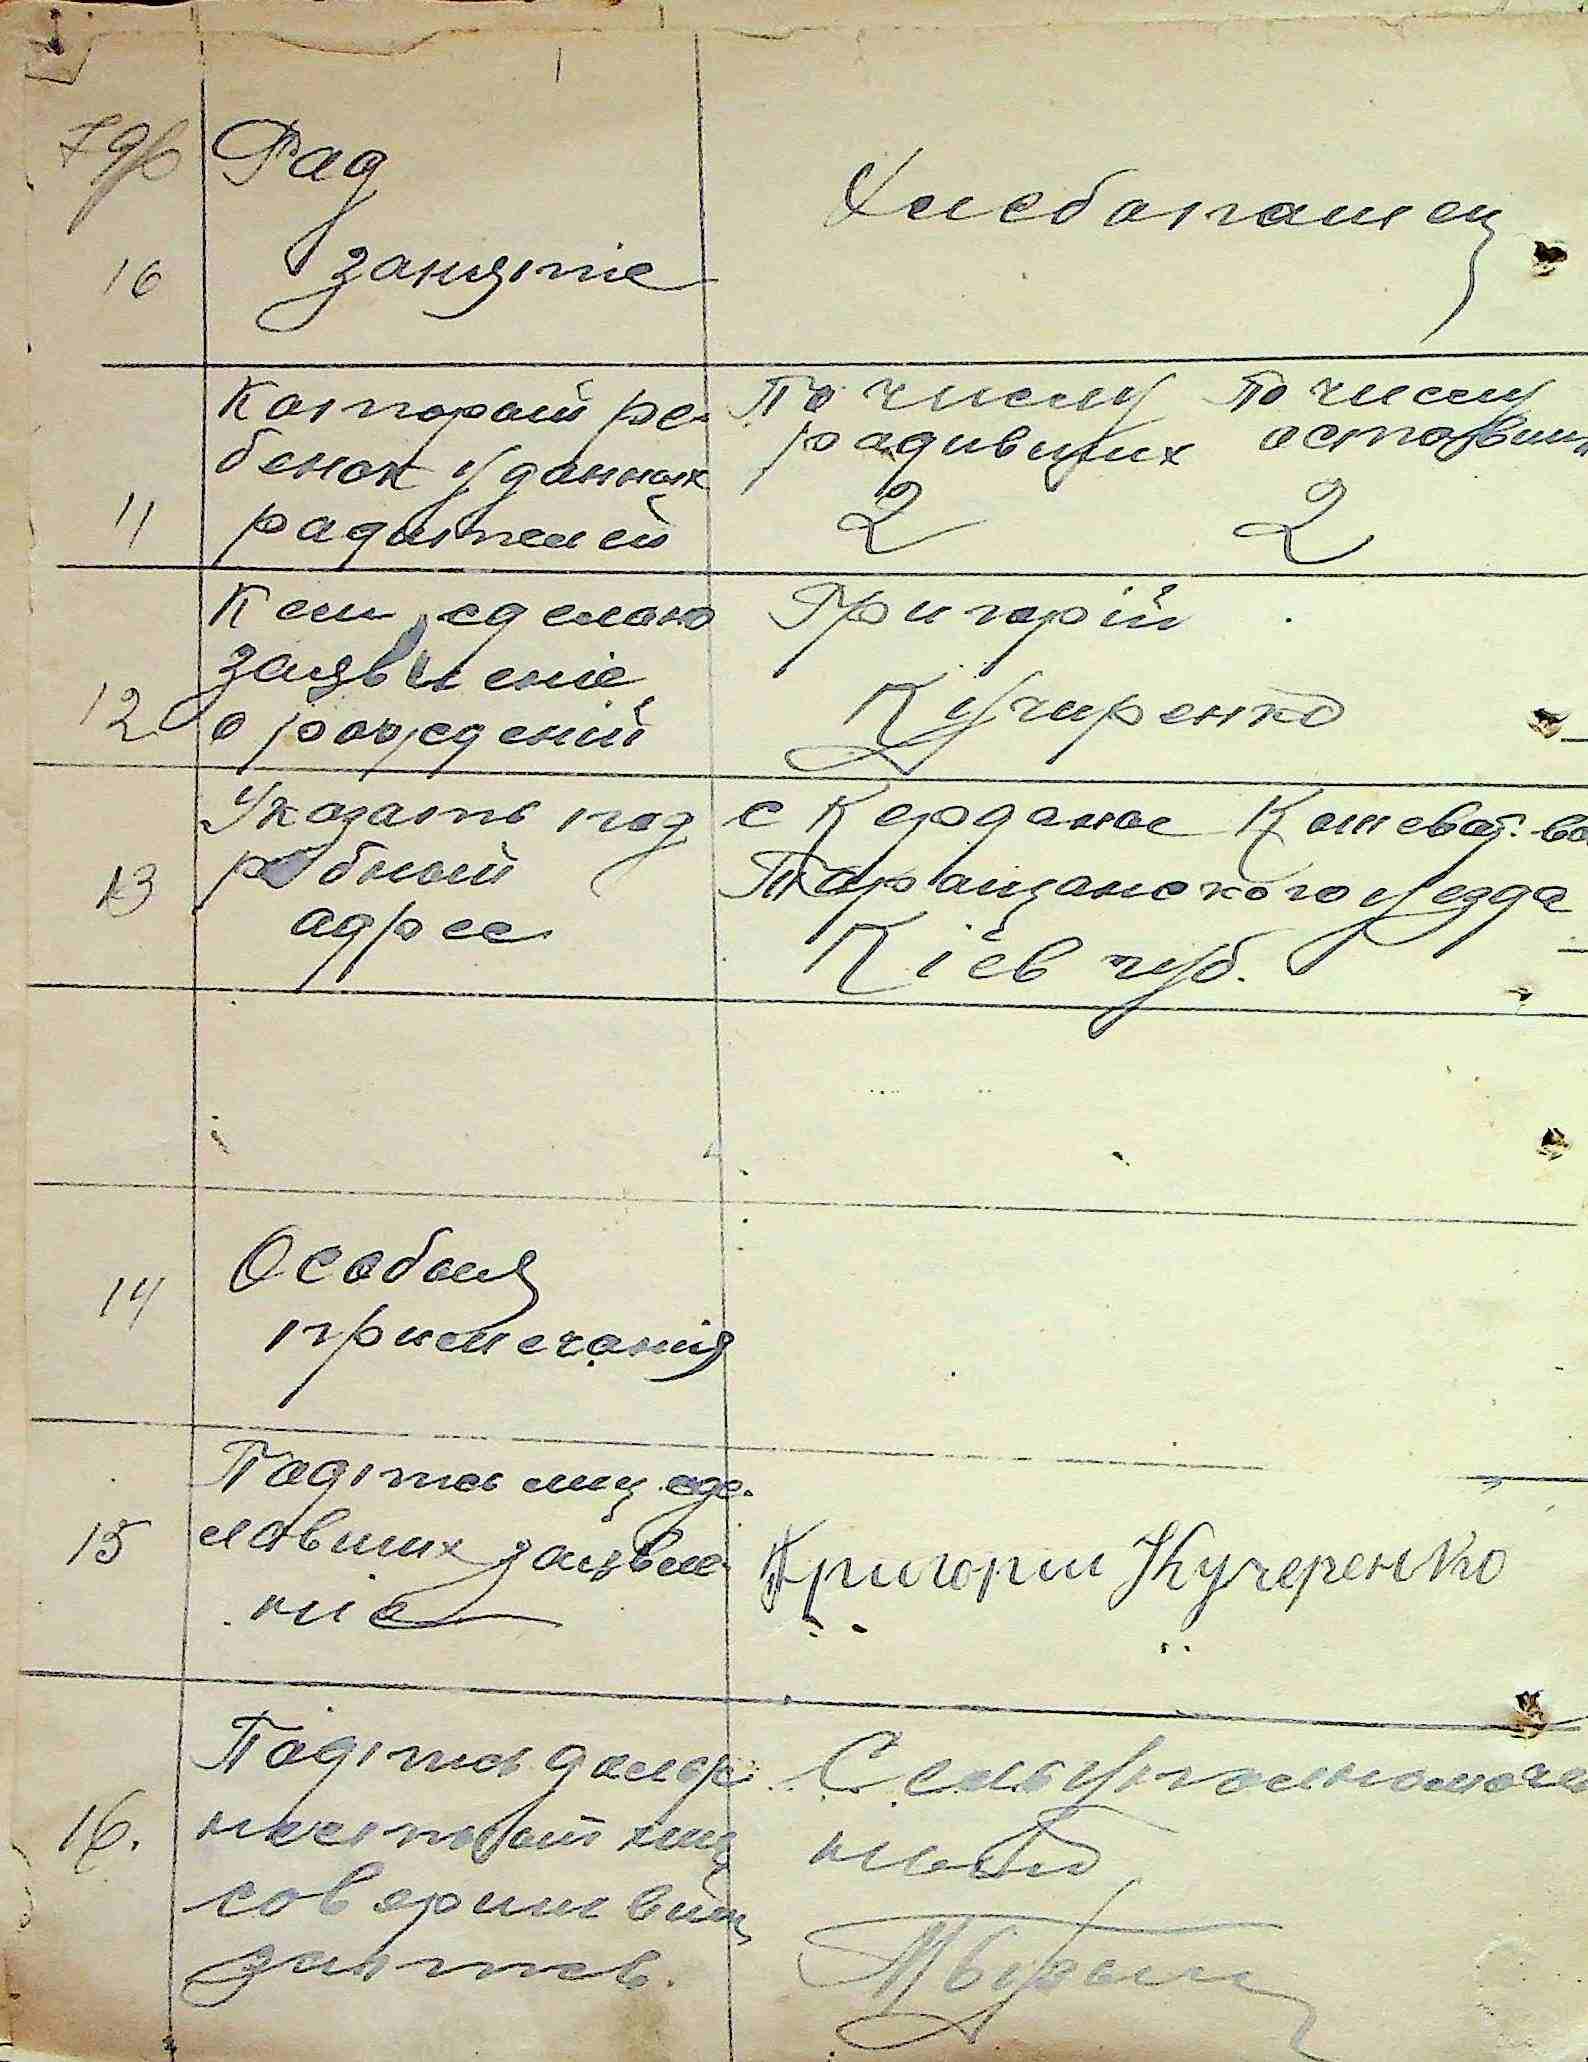 10
Рад
занятіе
Хлебопашец
11
Каторай ре-
бенок у данных
радителей
По числу
радивших
2
По числу
оставших
2
12
Кем сделано
заявление
о рождений
Григорій
Кучиренко
13
Указать под
робный
адрес
с Керданос Кошеват. во
Таращанского уезда
Кіев губ.
14
Особыя
примечанія
15
Падпись лиц сде-
лавших заявле-
ніе
Григории Кучеренко
16.
Падпись должн
насных лиц
совершивш
запись.
Сельуполномоче
ный